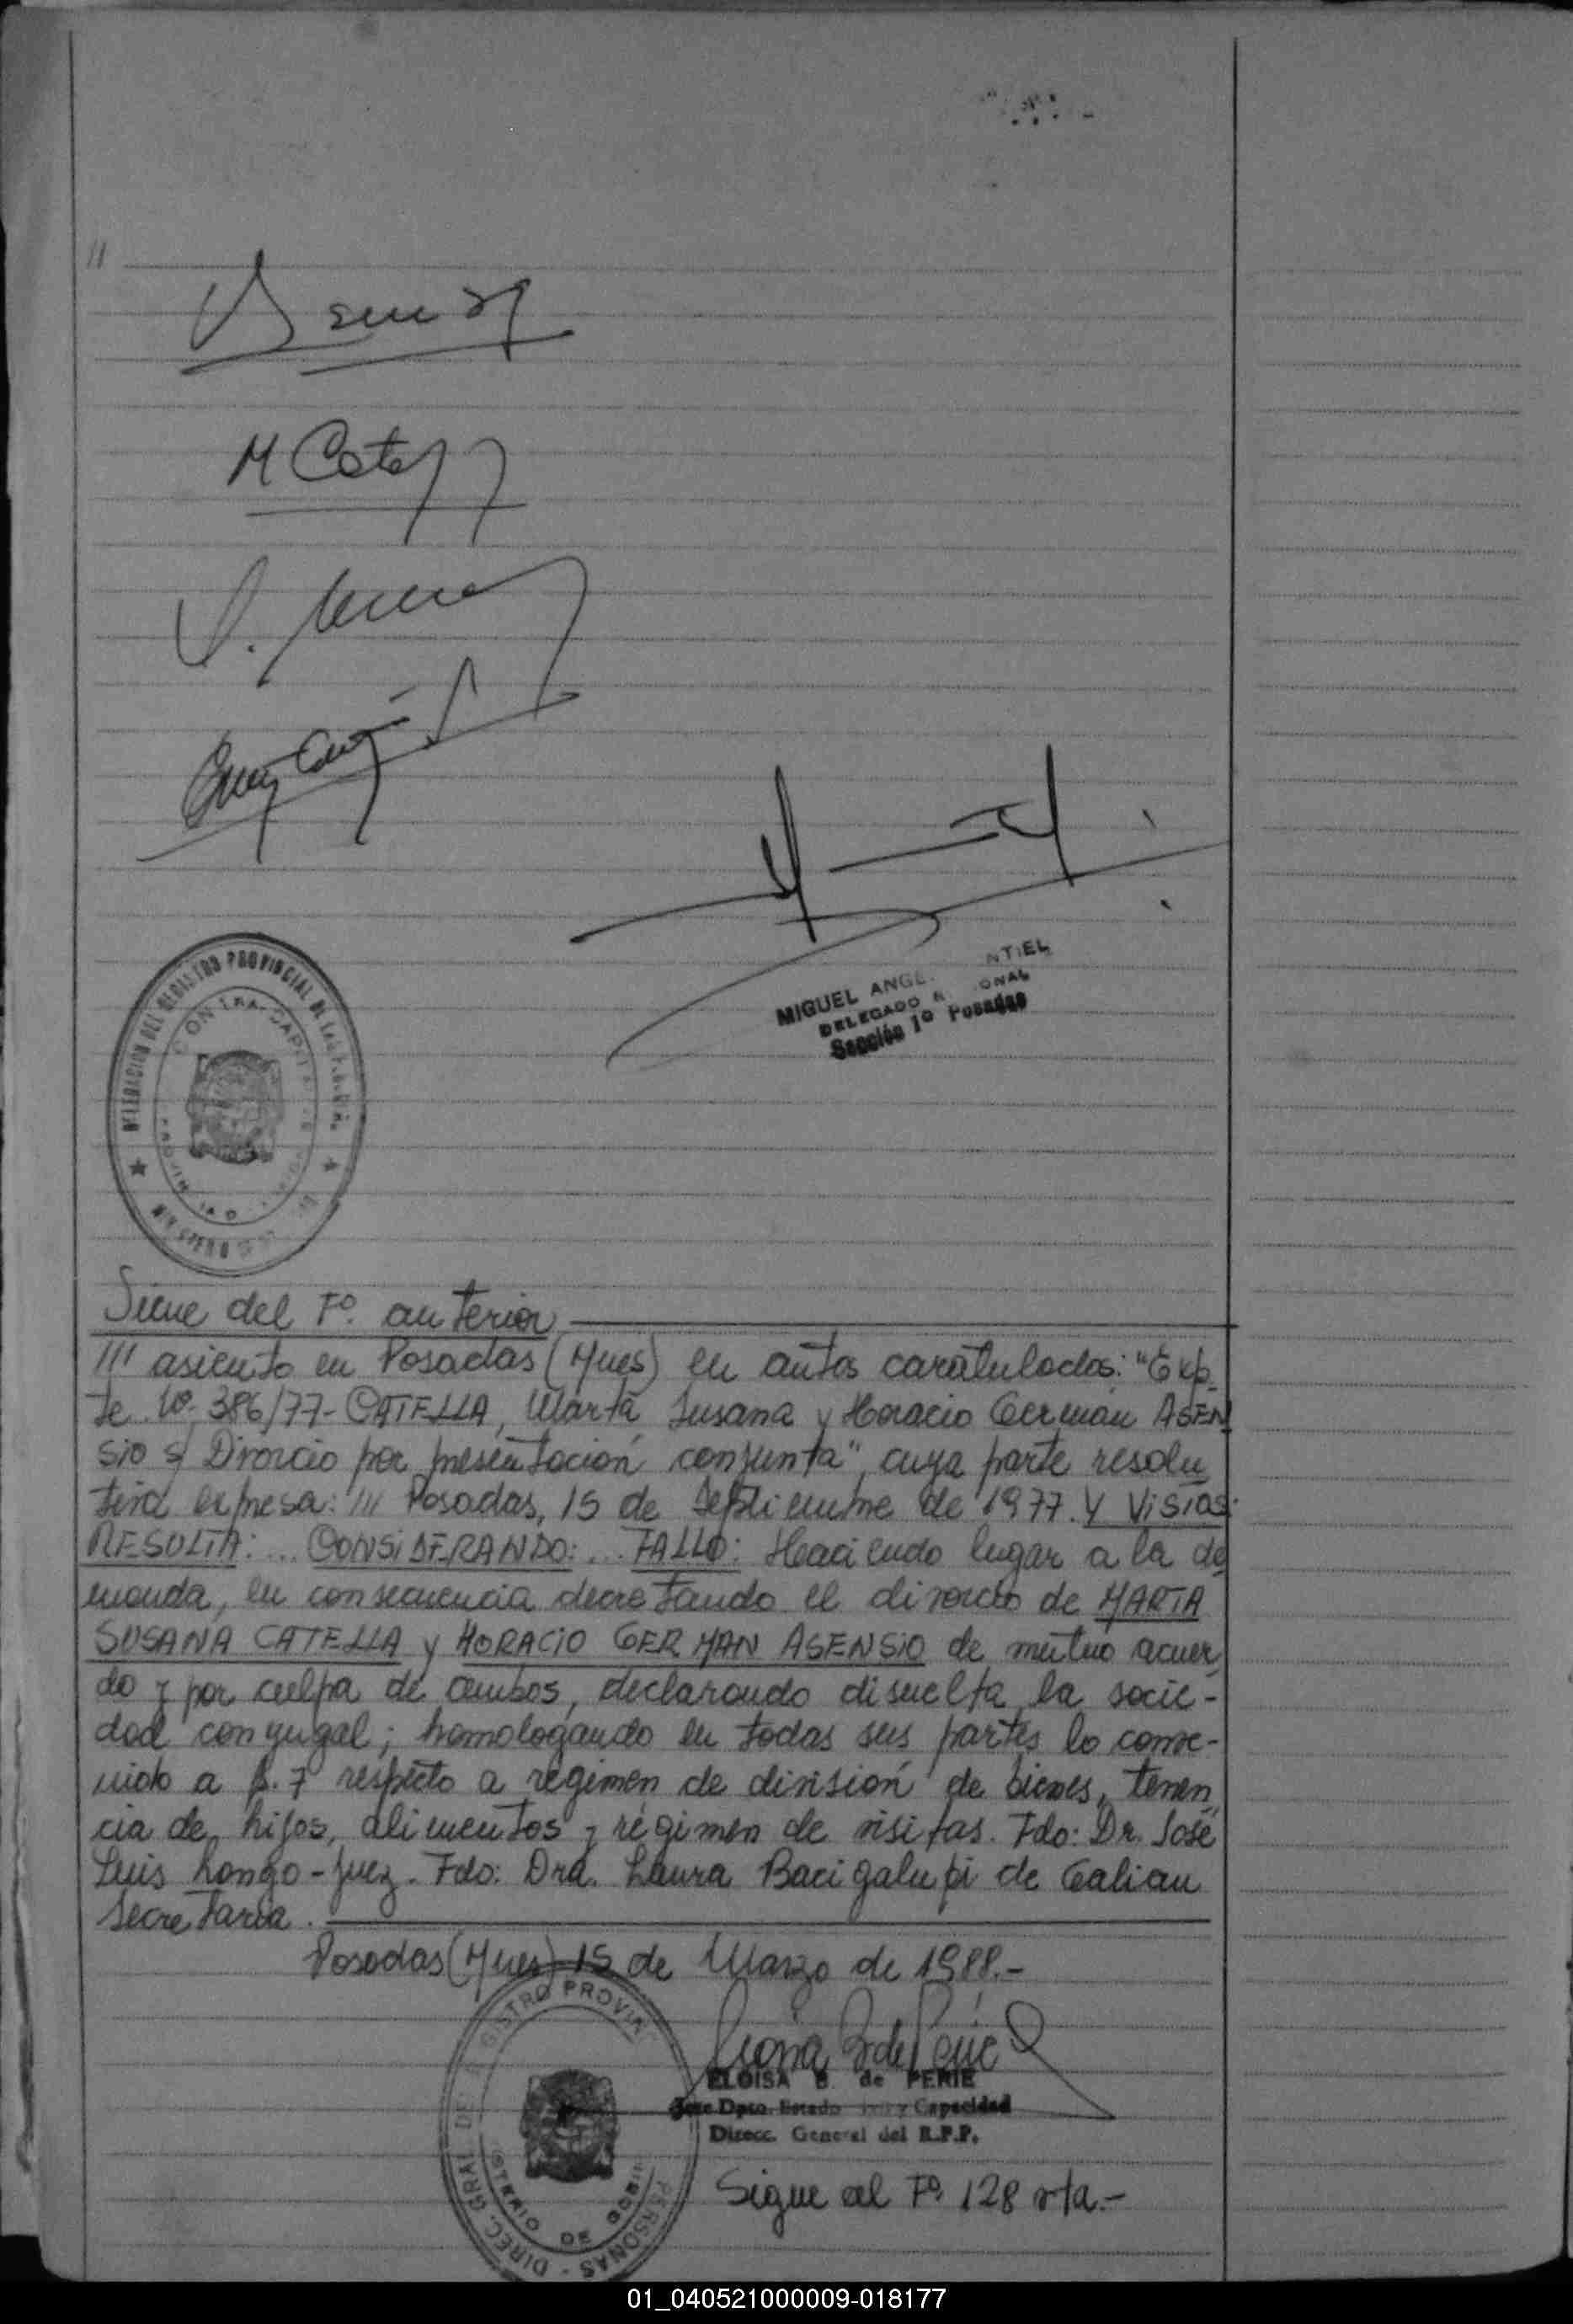 //
M Cate
DELEGACION DEL REGISTRO PROVINCIAL DE LAS PERSONAS
MIGUEL ANGE NTIEL
DELEGADO R ONAL
Sección 1º Posadas
Sigue del Fº. anterior
/// asiento en Posadas (Mnes) en autos caratulados: "Exp-
te. Nº. 386/77- CATELLA, Marta Susana y Horacio Germán ASEN
SIO s/ Divorcio por presentación conjunta", cuya parte resolu
tiva expresa: /// Posadas, 15 de Septiembre de 1977. Y VISTOS:
RESULTA: ... CONSIDERANDO: ... FALLO: Haciendo lugar a la de
manda, en consecuencia decretando el divorcio de MARTA
SUSANA CATELLA y HORACIO GERMAN ASENSIO de mutuo acuer
do y por culpa de ambos, declarando disuelta la socie-
dad conyugal; homologando en todas sus partes lo conve-
nido a f. 7 respecto a régimen de división de bienes, tenen
cia de hijos, alimentos y régimen de visitas. Fdo: Dr. José
Luis Longo - Juez. Fdo: Dra. Laura Bacigalupi de Galian
Secretaria.
Posadas (Mnes) 15 de Marzo de 1988.-
ELOISA B. de PERIE
Jefe Dpto. Estado Civil y Capacidad
Direcc. General del R.P.P.
DIREC. GRAL. DE REGISTRO PROVIN PERSONAS
Sigue al Fº 128 vta.-
01_040521000009-018177